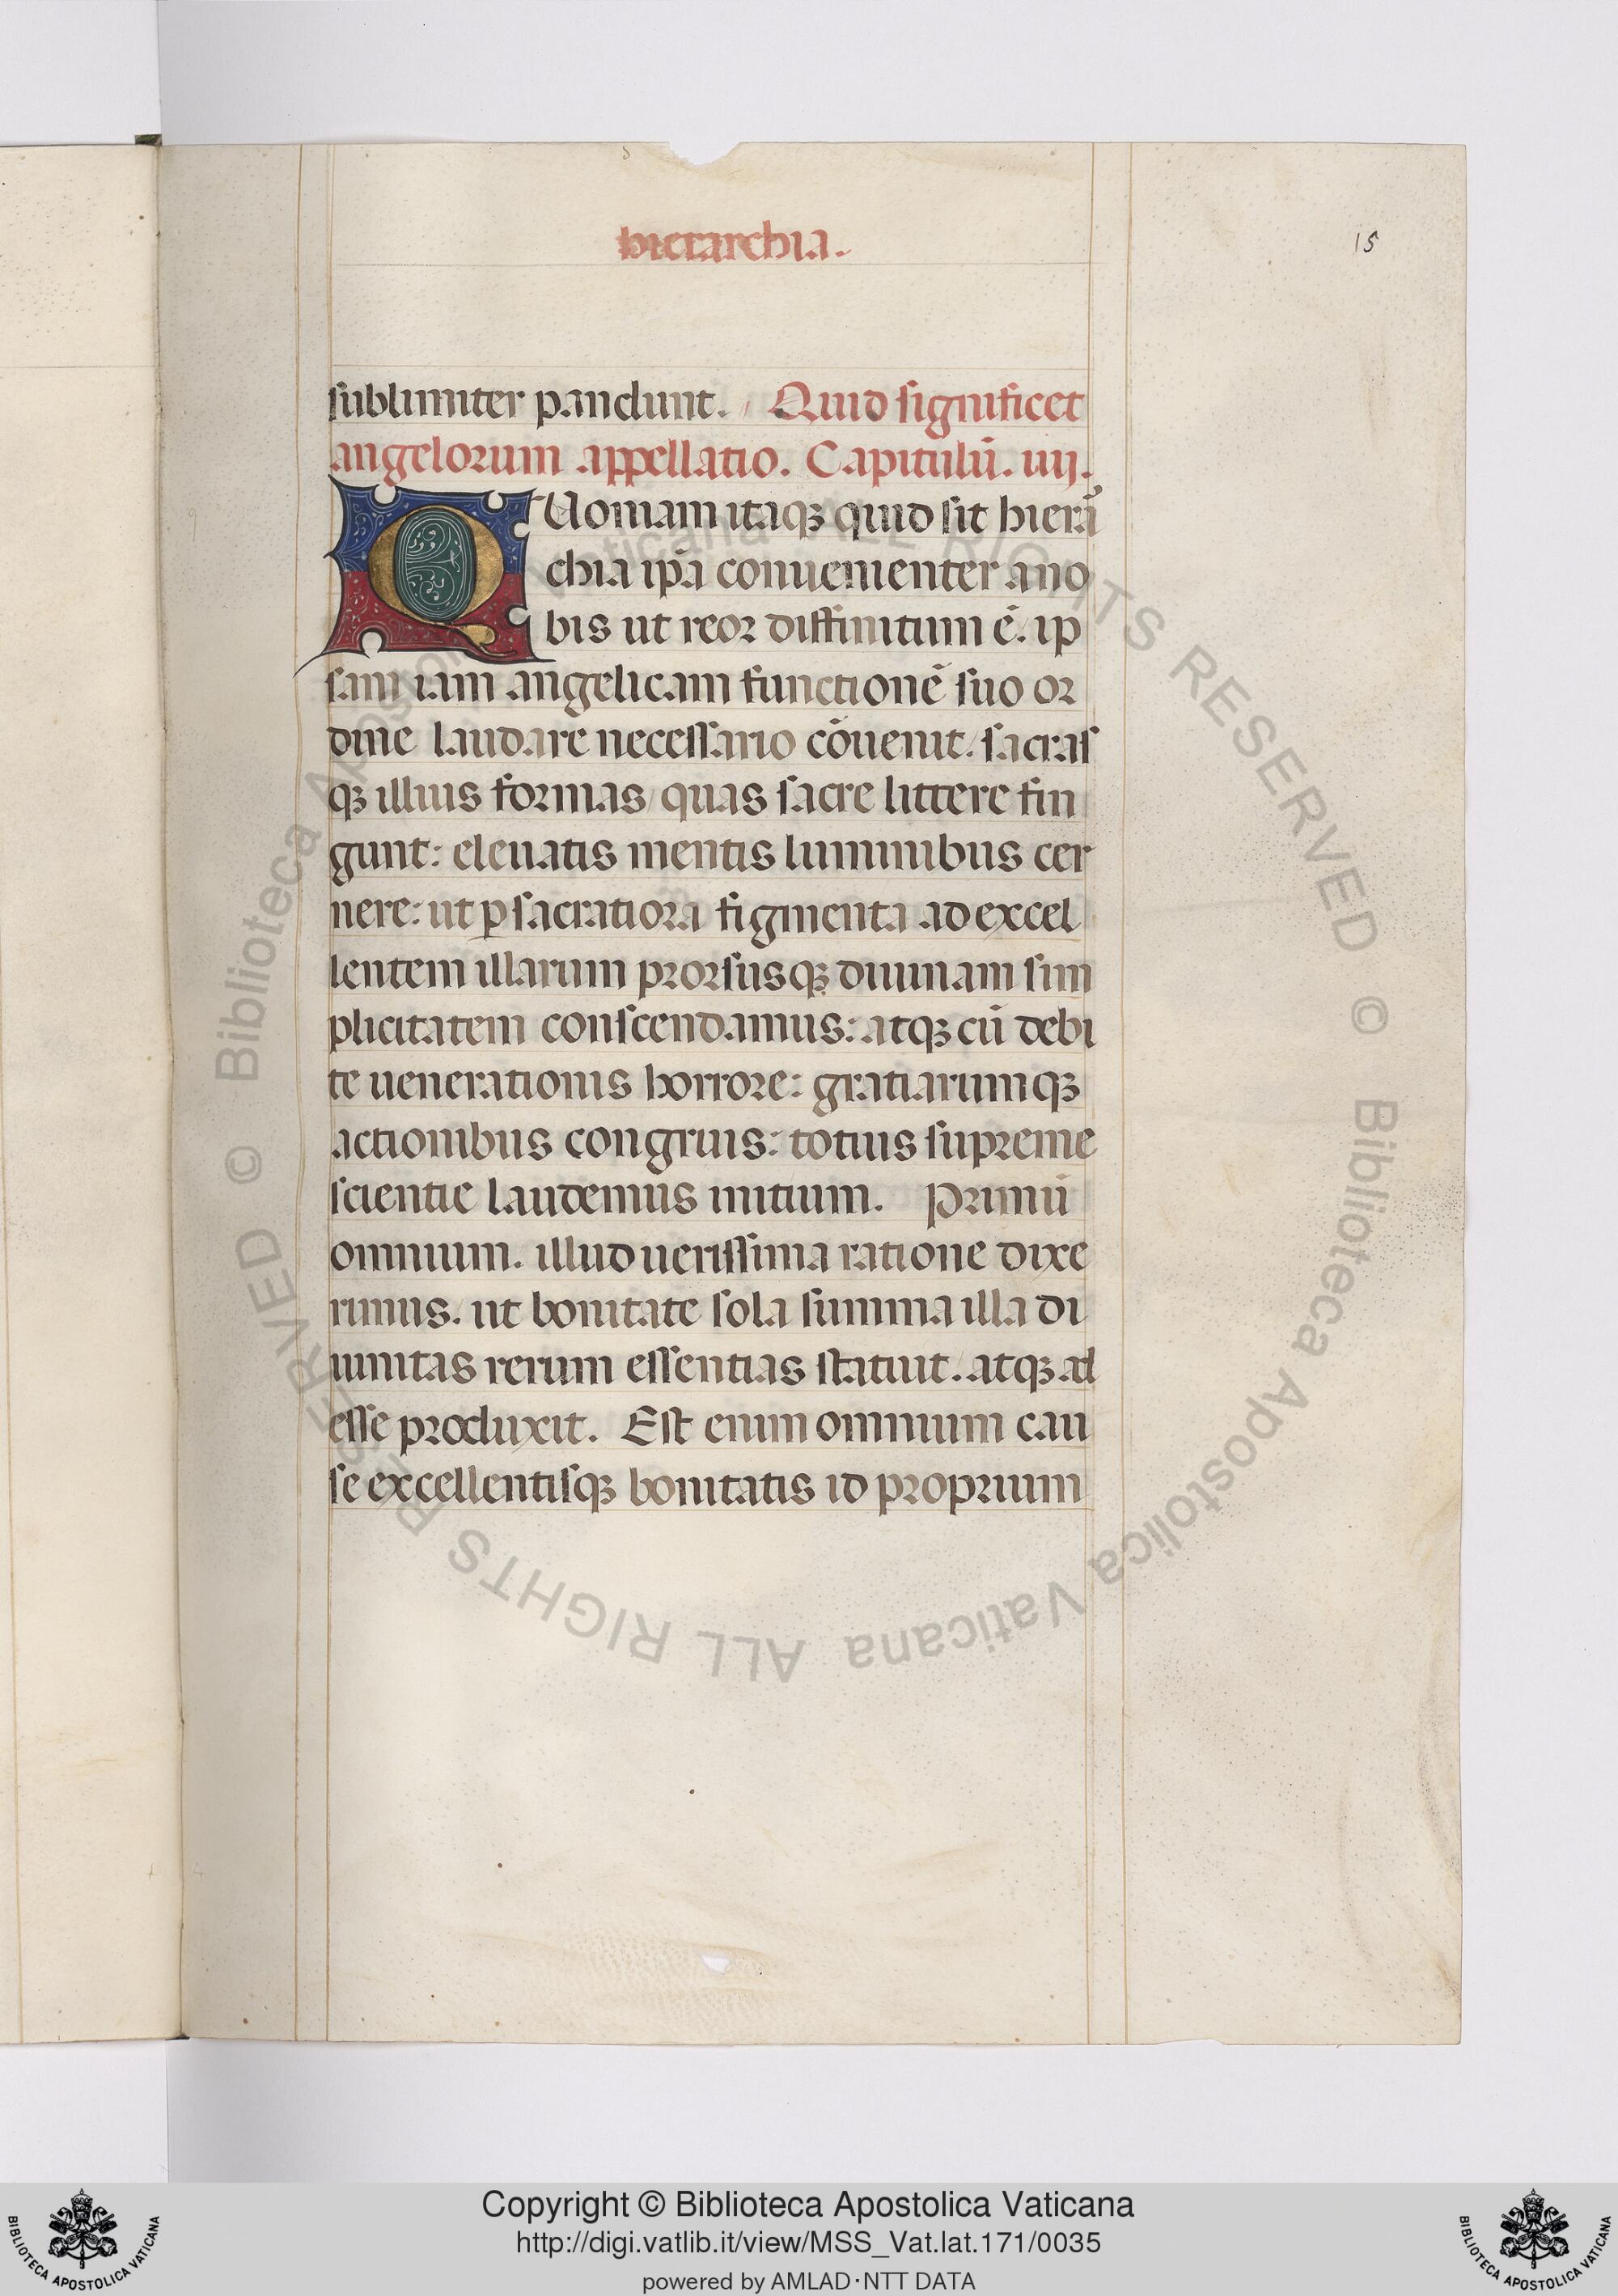 hierarchia.
15
sublimiter pandunt. Quid significet
angelorum appellatio. Capitulū. iiij.
QUoniam itaqꝫ quid sit hierar̄
chia ip̄a conuenienter a no
bis ut reor diffinitum ē. ip
sam iam angelicam functionē suo or
dine laudare necessario cōuenit. sacras
qꝫ illius formas quas sacre littere fin
gunt: eleuatis mentis luminibus cer
nere: ut ꝑ sacratiora figmenta ad excel
lentem illarum prorsusqꝫ diuinam sim
plicitatem conscendamus: atqꝫ cū debi
te uenerationis horrore: gratiarumqꝫ
actionibus congruis: totius supreme
scientie laudemus initium. Primū
omnium. illud uerissima ratione dixe
rimus. ut bonitate sola summa illa di
uinitas rerum essentias statuit. atqꝫ ad
esse produxit. Est enim omnium cau
se excellentisqꝫ bonitatis id proprium
© Biblioteca Apostolica Vaticana ALL RIGHTS RESERVED
© Biblioteca Apostolica Vaticana ALL RIGHTS RESERVED
Copyright © Biblioteca Apostolica Vaticana
http://digi.vatlib.it/view/MSS_Vat.lat.171/0035
powered by AMLAD·NTT DATA
BIBLIOTECA APOSTOLICA VATICANA
BIBLIOTECA APOSTOLICA VATICANA